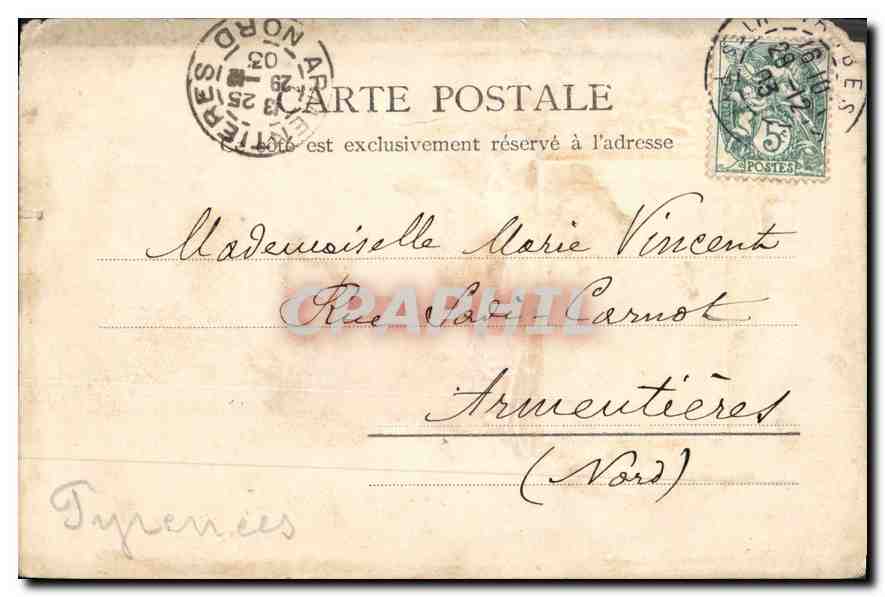 CARTE POSTALE
côté est exclusivement réservé à l'adresse
ARMENTIÈRES
NORD
25
29
03
16 10
29 -12
03
5c
POSTES
Mademoiselle Marie Vincent
Rue Sadi-Carnot
Armentières
(Nord)
CPAPHIL
Pyrénées